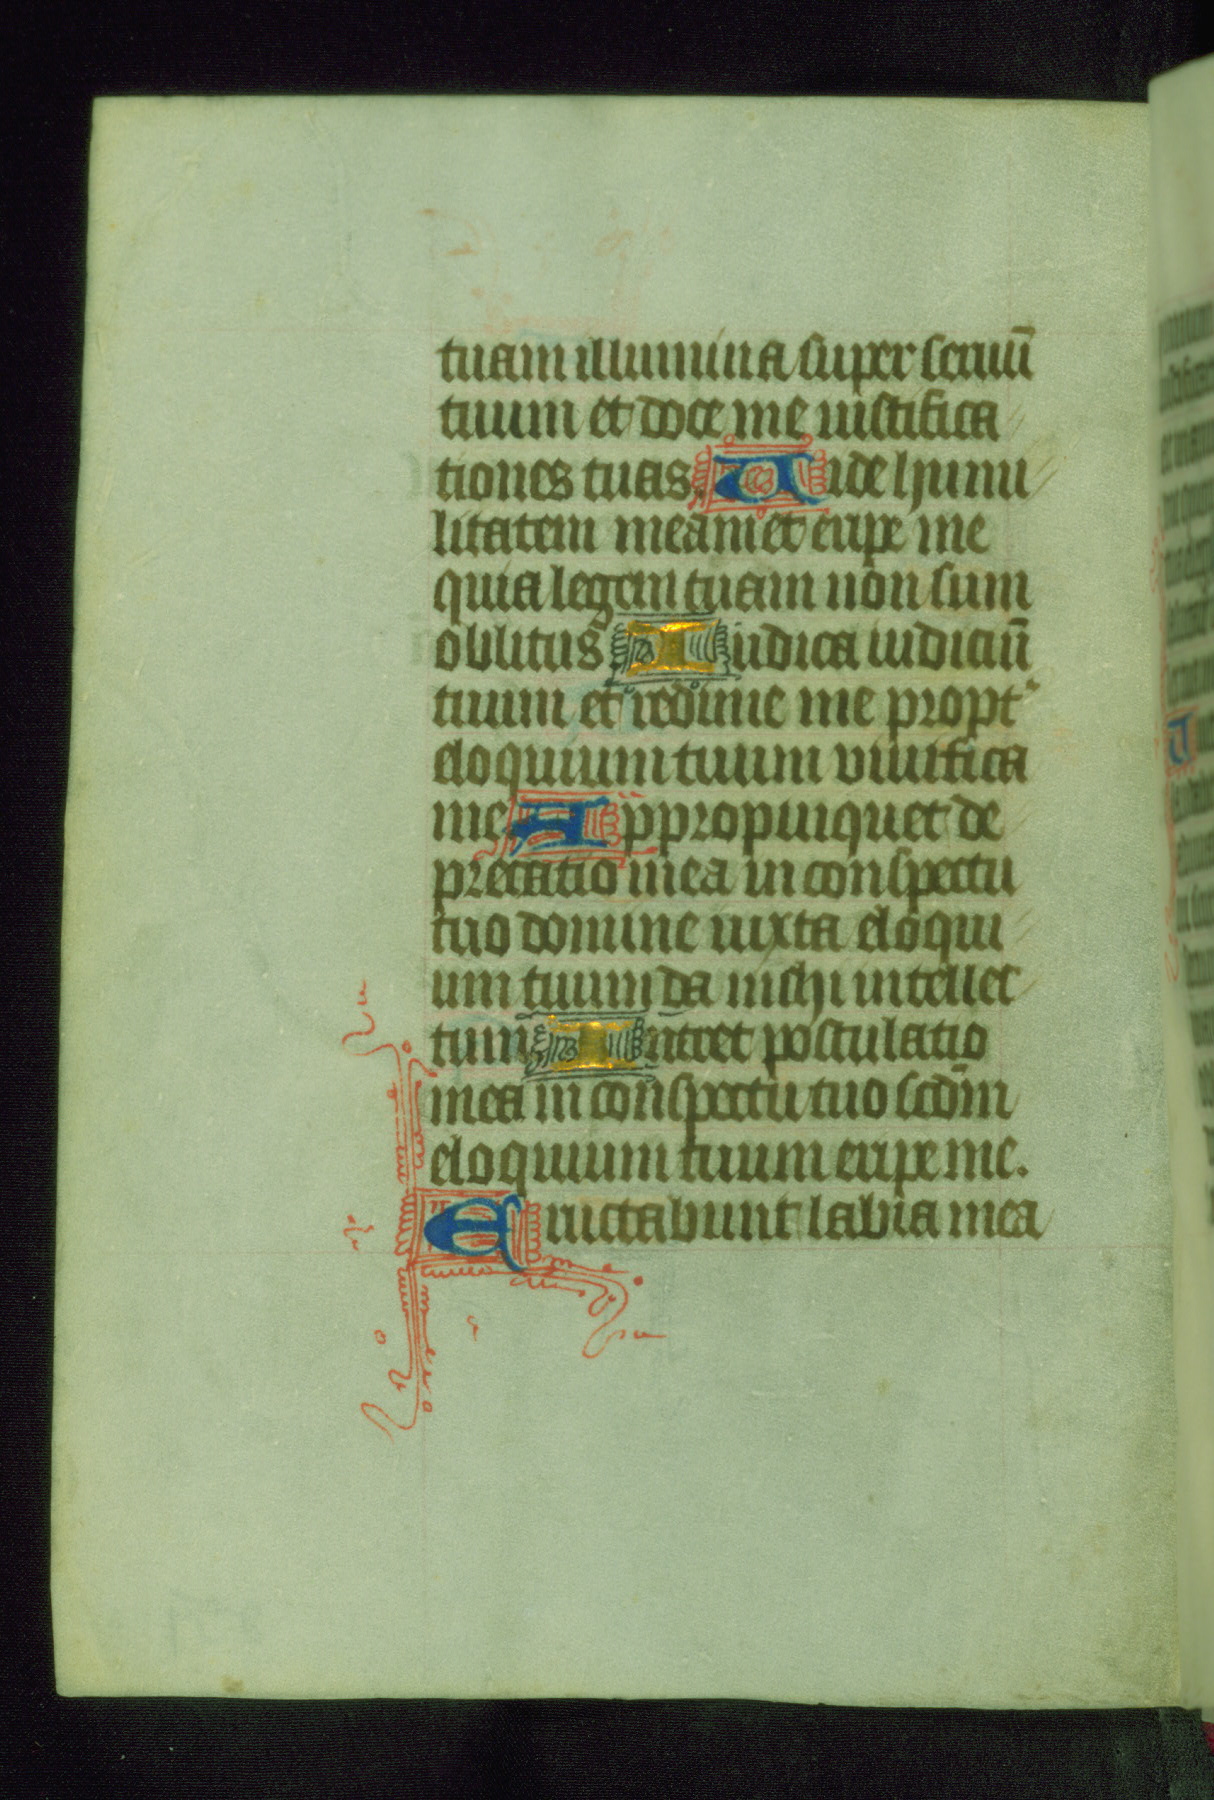 tuam illumina super seruū
tuum et doce me iustifica
tiones tuas Uide humi
litatem meam et eripe me
quia legem tuam non sum
oblitus Iudica iudiciū
tuum et redime me propt᷒
eloquium tuum viuifica
me Appropinquet de
precatio mea in conspectu
tuo domine iuxta eloqui
um tuum da michi intellec
tum Intret postulatio
mea in conspectu tuo scd̄m
eloquium tuum eripe me.
Eructabunt labia mea